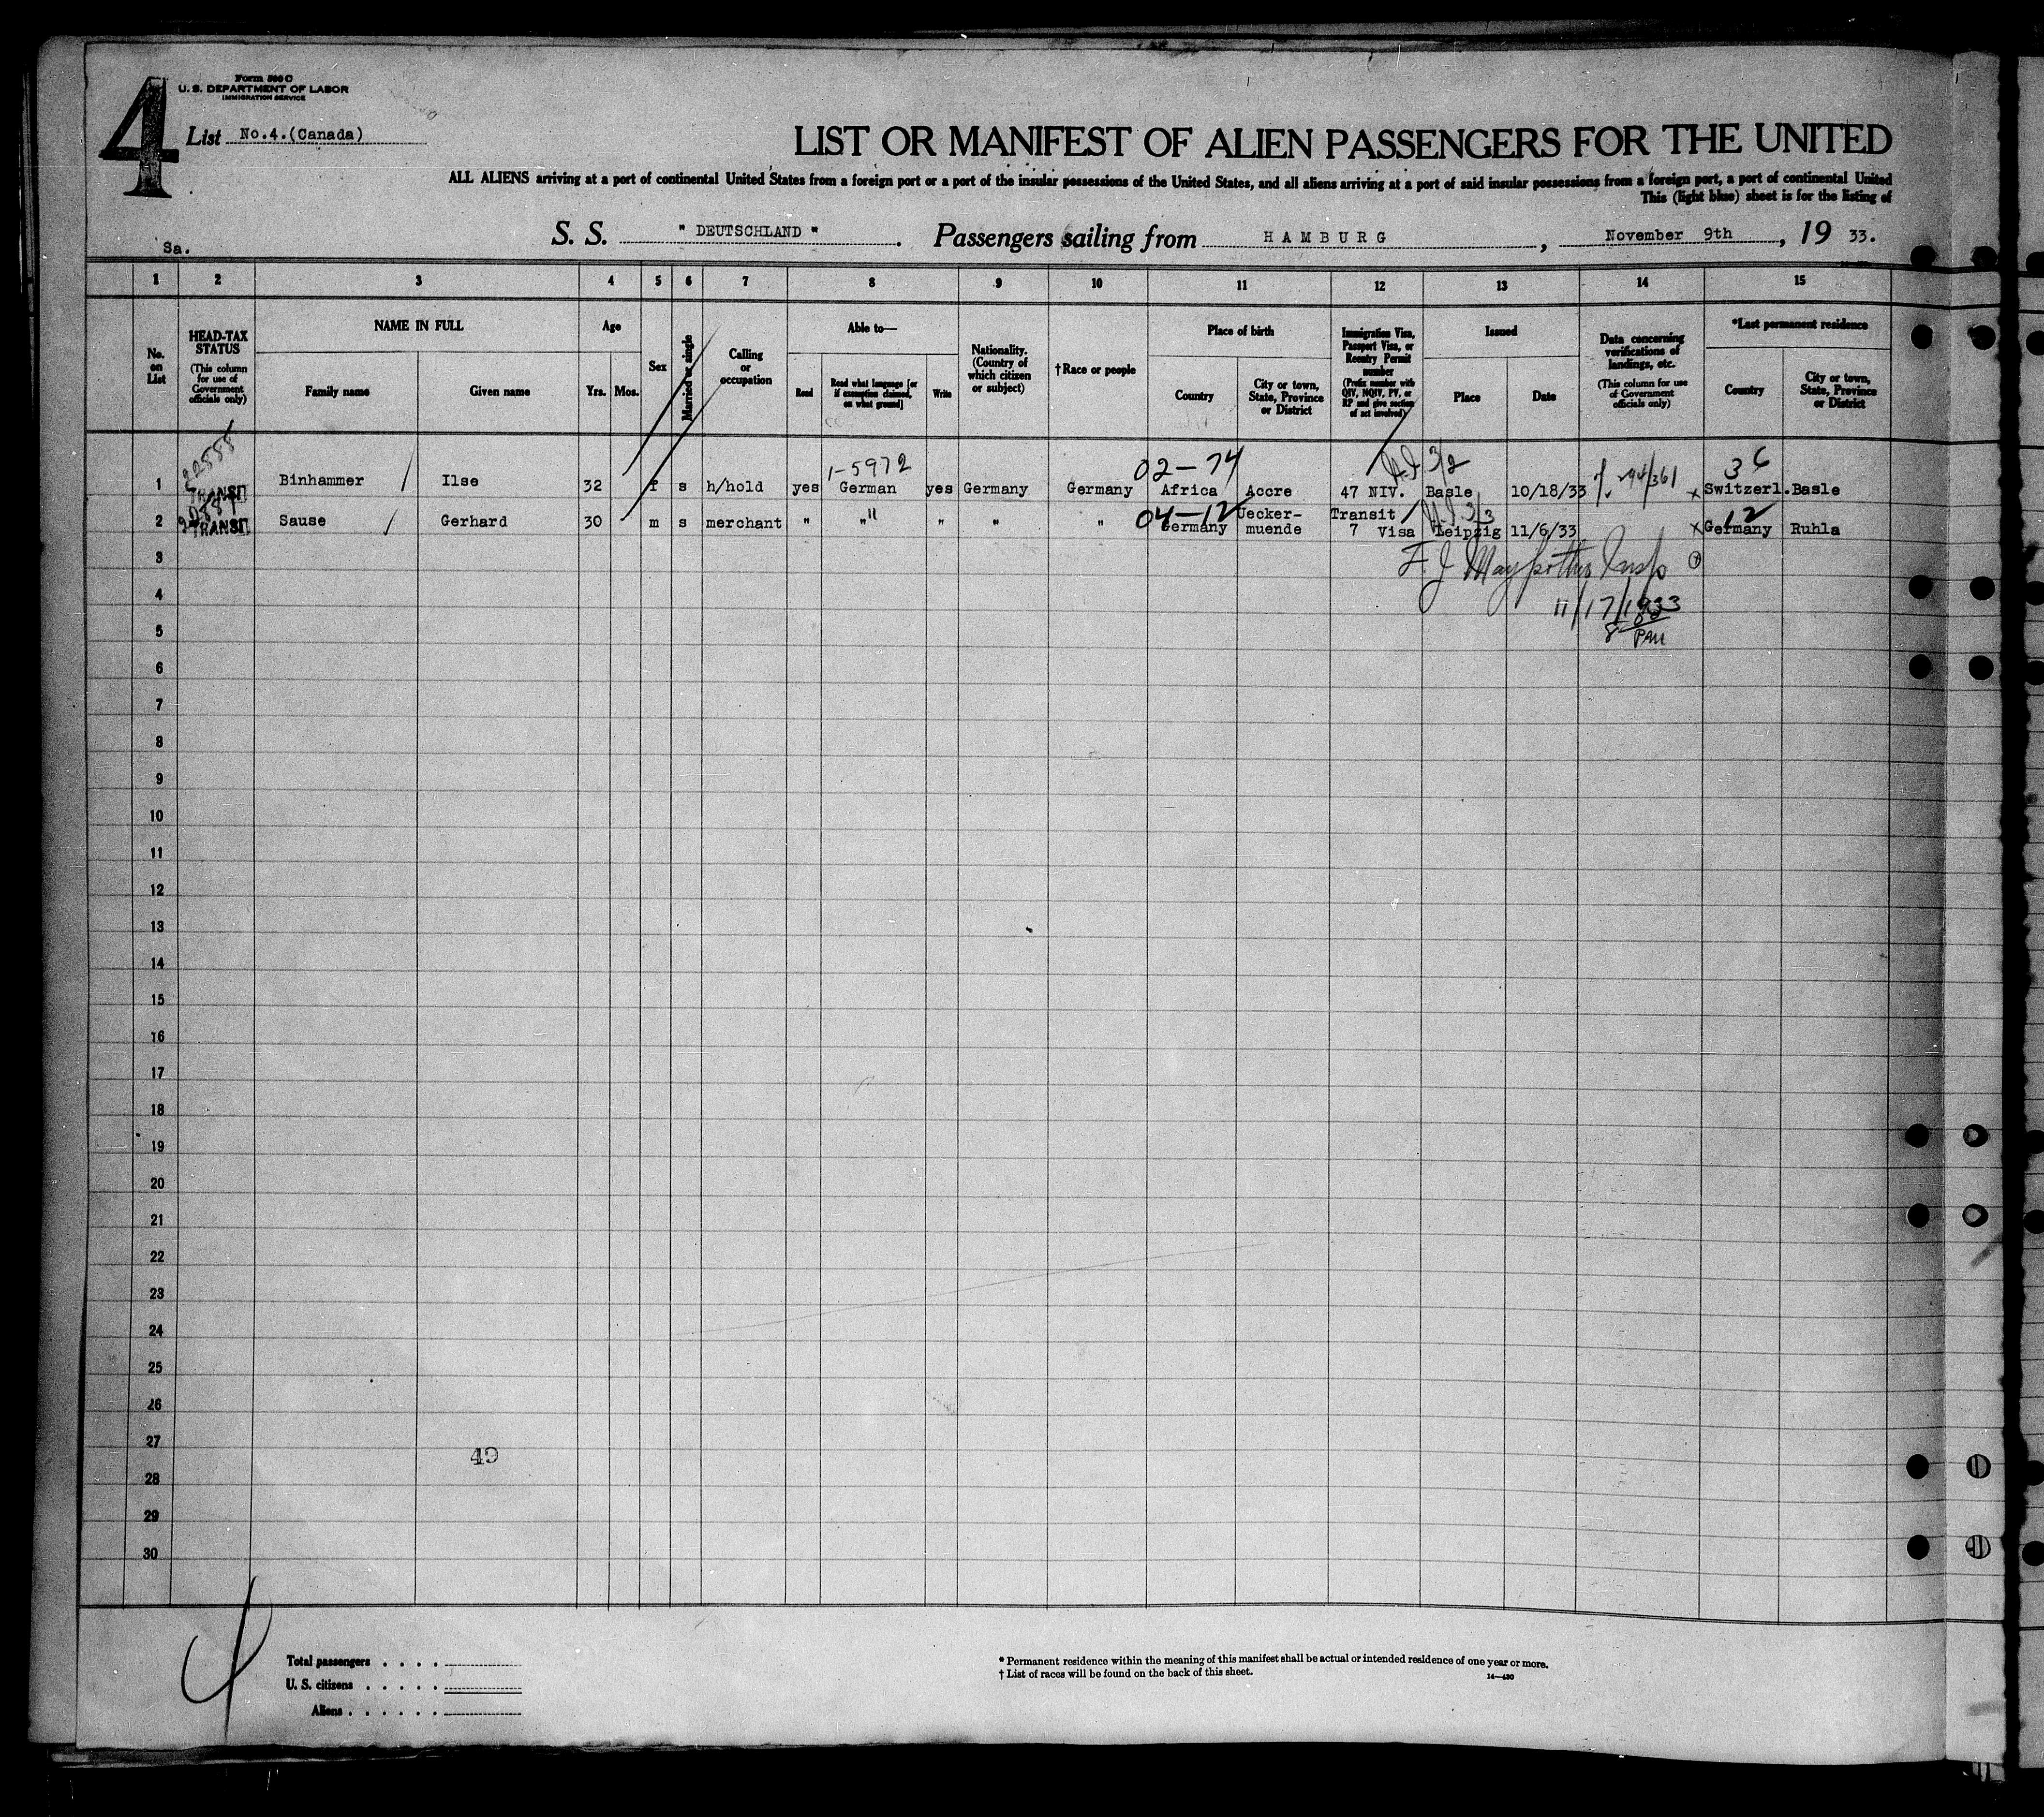 4
Form 500 C
U. S. DEPARTMENT OF LABOR
IMMIGRATION SERVICE
List No.4.(Canada)
LIST OR MANIFEST OF ALIEN PASSENGERS FOR THE UNITED
ALL ALIENS arriving at a port of continental United States from a foreign port or a port of the insular possessions of the United States, and all aliens arriving at a port of said insular possessions from a foreign port, a port of continental United
This (light blue) sheet is for the listing of
Sa.
S. S. " DEUTSCHLAND " . Passengers sailing from HAMBURG , November 9th , 19 33.
1 2 3 4 5 6 7 8 9 10 11 12 13 14 15
No. on List
HEAD-TAX STATUS
(This column for use of Government officials only)
NAME IN FULL
Family name
Given name
Age
Yrs. Mos.
Sex
Married or single
Calling or occupation
Able to—
Read
Read what language [or if exemption claimed, on what ground]
Write
Nationality. (Country of which citizen or subject)
†Race or people
Place of birth
Country
City or town, State, Province or District
Immigration Visa, Passport Visa, or Reentry Permit number
(Prefix number with QIV, NQIV, PV, or RP and give section of act involved)
Issued
Place
Date
Data concerning verifications of landings, etc.
(This column for use of Government officials only)
*Last permanent residence
Country
City or town, State, Province or District
1-5972 02-74 36
1 TRANSIT Binhammer Ilse 32 f s h/hold yes German yes Germany Germany Africa Accre 47 NIV. Basle 10/18/33 x Switzerl. Basle
04-12 12
2 TRANSIT Sause Gerhard 30 m s merchant " " " " " Germany Uecker-muende Transit 7 Visa Leipzig 11/6/33 x Germany Ruhla
3
11/17/1933
4
5
6
7
8
9
10
11
12
13
14
15
16
17
18
19
20
21
22
23
24
25
26
27
49
28
29
30
4
Total passengers . . . .
U. S. citizens . . . . .
Aliens . . . . . .
* Permanent residence within the meaning of this manifest shall be actual or intended residence of one year or more.
† List of races will be found on the back of this sheet.